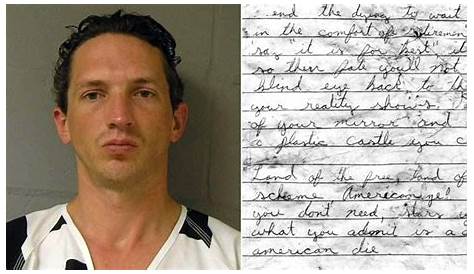 end the dying to wait
in the comfort of retiremen
say "it is for best" it
so then fate you'll not
blind eye back to th
your reality shows.
of your mirror and
a plastic castle you c
Land of the free, land of
scheme, Americanize!
you don't need, stars
what you admit is a
american die